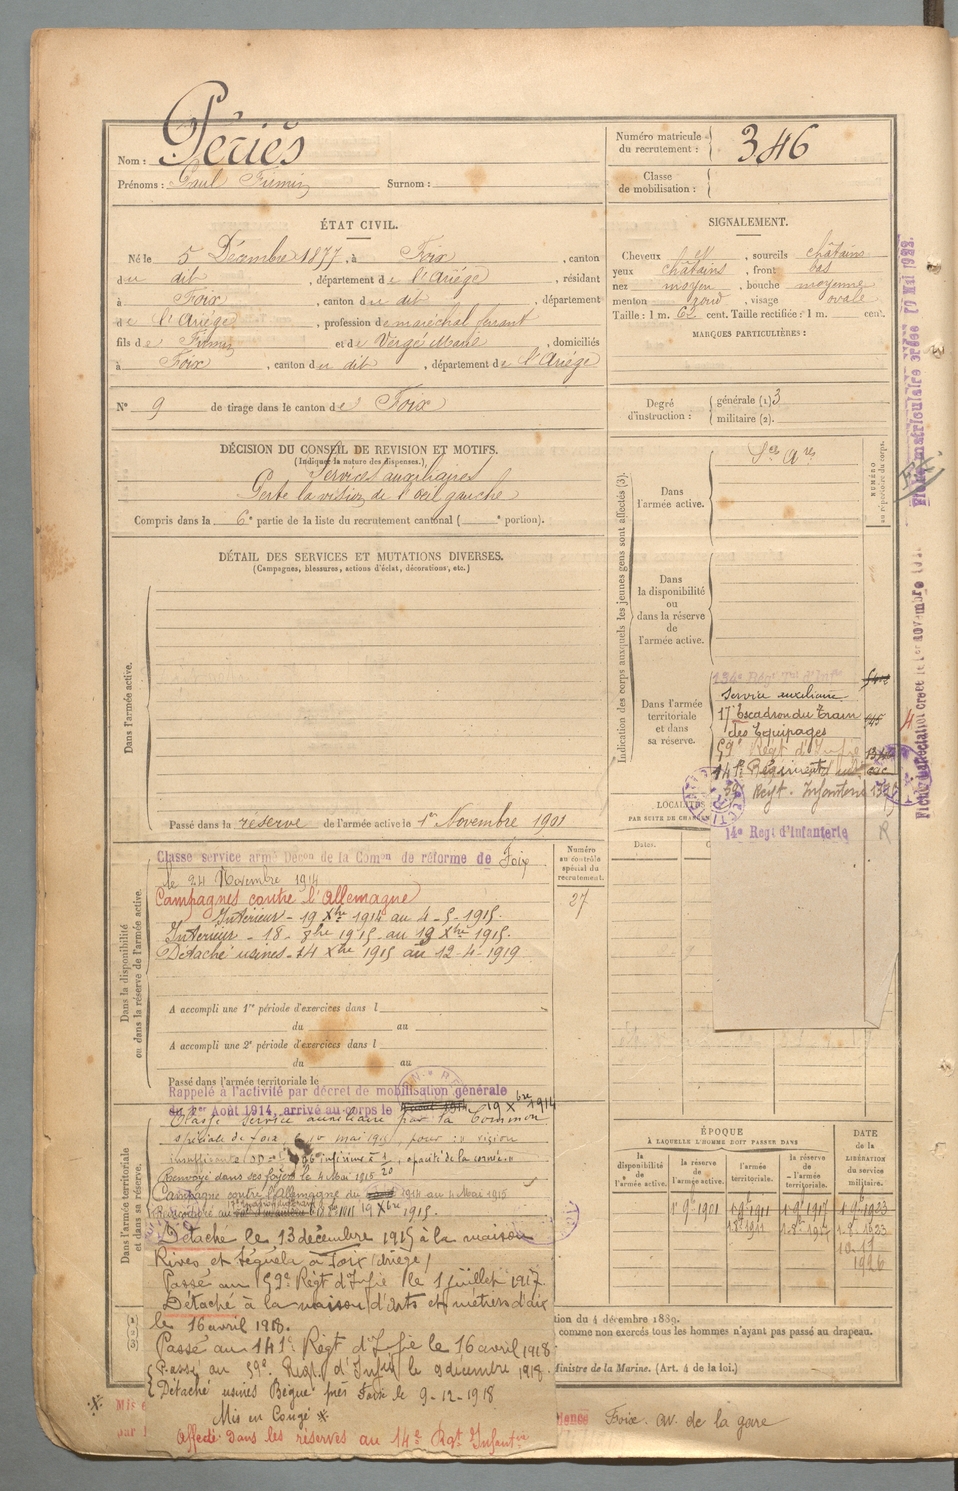 Nom : Périès
Prénoms : Paul Firmin Surnom :
Numéro matricule du recrutement : 346
Classe de mobilisation :
ÉTAT CIVIL.
Né le 5 Décembre 1877, à Foix, canton
du dit, département de l'Ariège, résidant
à Foix, canton du dit, département
de l'Ariège, profession de maréchal ferrant
fils de Firmin et de Vergé Marie, domiciliés
à Foix, canton du dit, département de l'Ariège
N° 9 de tirage dans le canton de Foix
SIGNALEMENT.
Cheveux et, sourcils châtains
yeux châtains, front bas
nez moyen, bouche moyenne
menton rond, visage ovale
Taille : 1 m. 62 cent. Taille rectifiée : 1 m. cent.
MARQUES PARTICULIÈRES :
Degré d'instruction : générale (1) 3
militaire (2).
DÉCISION DU CONSEIL DE REVISION ET MOTIFS.
(Indiquer la nature des dispenses.)
Services auxiliaires
Perte la vision de l'œil gauche
Compris dans la 6e partie de la liste du recrutement cantonal ( e portion).
DÉTAIL DES SERVICES ET MUTATIONS DIVERSES.
(Campagnes, blessures, actions d'éclat, décorations, etc.)
Dans l'armée active.
Passé dans la réserve de l'armée active le 1er Novembre 1901
Indication des corps auxquels les jeunes gens sont affectés (3).
NUMÉRO au répertoire du corps.
Dans l'armée active.
Sces Ares
Dans la disponibilité ou dans la réserve de l'armée active.
Dans l'armée territoriale et dans sa réserve.
134e Régt Tal d'Infie
Service auxiliaire
17e Escadron du Train
des Equipages
59e Régt d'Infie
141e Régiment
59e Régt. Infanterie
14e Régt d'Infanterie
R
LOCALITÉS
PAR SUITE DE CHAN
Dates.
Dans la disponibilité ou dans la réserve de l'armée active.
Classe service armé Décon de la Comon de réforme de Foix
le 24 Novembre 1914
Campagnes contre l'Allemagne
Intérieur - 19 Xbre 1914 au 4-5-1915.
Intérieur - 18 - 1915 au 13 Xbre 1915.
Détaché usines - 14 Xbre 1915 au 12-4-1919
Numéro au contrôle spécial du recrutement.
27
A accompli une 1re période d'exercices dans l
du au
A accompli une 2e période d'exercices dans l
du au
Passé dans l'armée territoriale le
Rappelé à l'activité par décret de mobilisation générale
du 1er Août 1914, arrivé au corps le 19 Xbre 1914
Dans l'armée territoriale et dans sa réserve.
Classé service auxiliaire par la Common
spéciale de Foix, le mai 1915, pour : vision
insuffisante inférieure à opacité de la cornée
Renvoyé dans ses foyers le 4 Mai 1915
Campagne contre l'Allemagne du 1914 au 4 Mai 1915
1915.
Détaché le 13 décembre 1915 à la maison
Rives et Séguéla à Foix (Ariège)
Passé au 59e Régt d'Infie le 1 juillet 1917
Détaché à la maison d'arts et métiers d'aix
le 16 avril 1918.
Passé au 141e Régt d'Infie le 16 avril 1918
Passé au 59e Régt. d'Infie le 9 décembre 1918
Détaché usines Bègue près Foix le 9-12-1918
Mis en Congé
Affecté dans les réserves au 14e Rgt Infantie
ÉPOQUE
À LAQUELLE L'HOMME DOIT PASSER DANS
la disponibilité de l'armée active.
la réserve de l'armée active.
l'armée territoriale.
la réserve de l'armée territoriale.
DATE de la LIBÉRATION du service militaire.
1 9bre 1901
1 9bre 1911
1 9bre 1917
1 9bre 1923
tion du 4 décembre 1889.
comme non exercés tous les hommes n'ayant pas passé au drapeau.
Ministre de la Marine. (Art. 4 de la loi.)
Foix. av. de la gare
Fiche matriculaire créée
Fiche d'affectation créée le 1er novembre